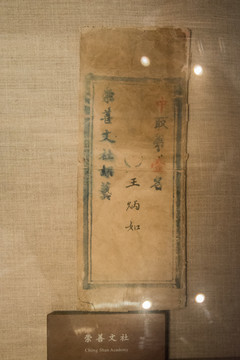 中取第壹名
王炳如
崇善文社
崇善文社
Chung Shan Academy